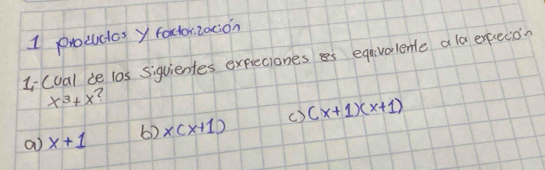 1 productos y factorización
1,- Cual de los siguientes expreciones es equivalente a la expreción
x³ + x?
a) x + 1 b) x(x+1) c) (x+1)(x+1)